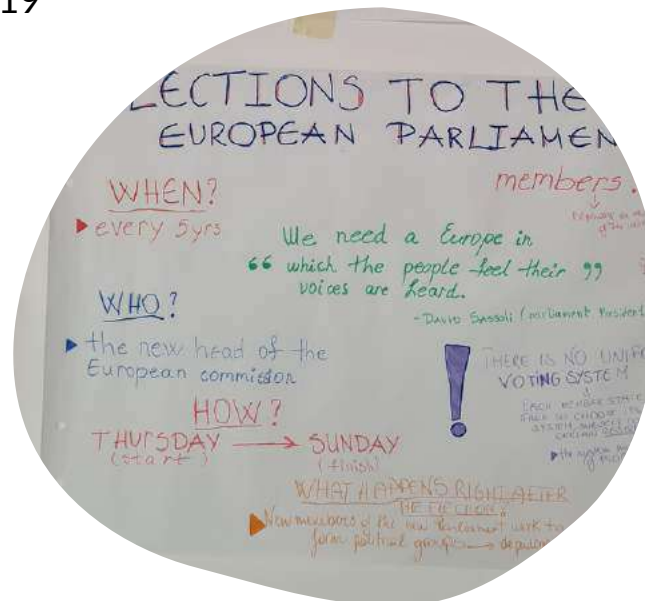 19
LECTIONS TO THE
EUROPEAN PARLIAMEN
WHEN?
▶ every 5yrs
members.
We need a Europe in
“ which the people feel their ”
voices are heard.
- David Sassoli (
WHO?
▶ the new head of the
European commission
HOW?
THURSDAY → SUNDAY
(start) (finish)
! THERE IS NO UNIF
VOTING SYSTEM
EACH MEMBER STATE
WHAT HAPPENS RIGHT AFTER
THE ELECTION?
▶ New members of the new Parliament work to
form political groups →